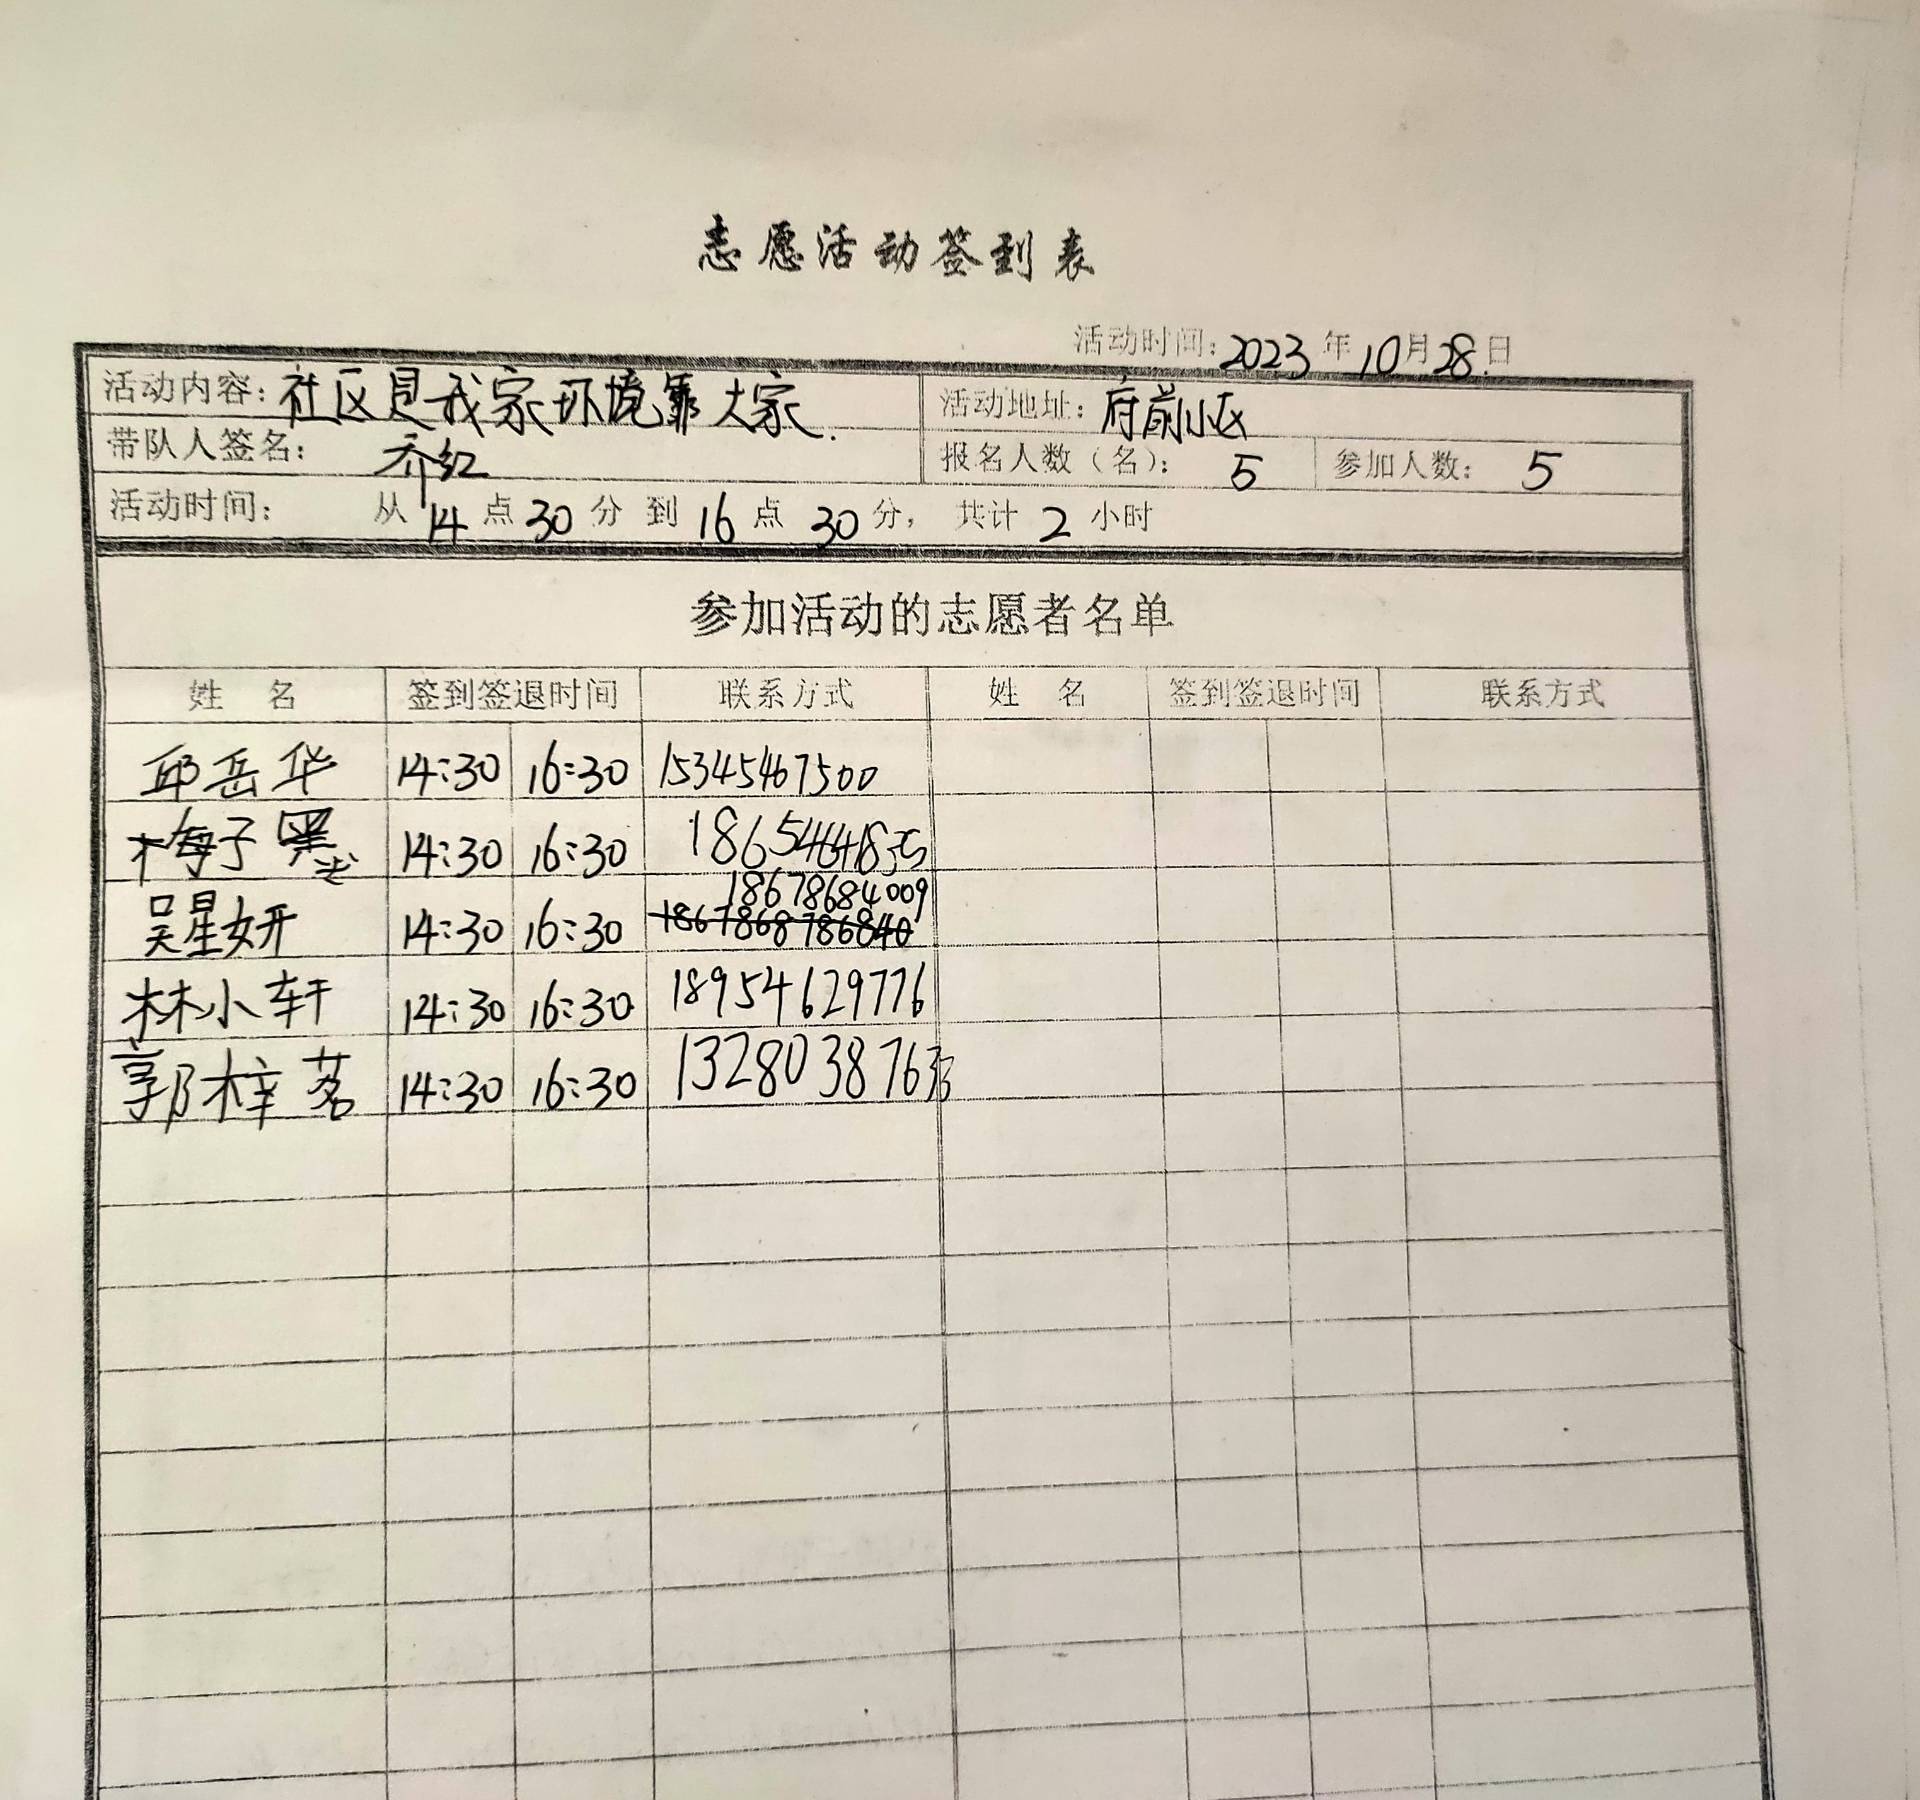 志愿活动签到表
活动时间：2023年10月28日
活动内容：社区是我家环境靠大家. 活动地址：府前小区
带队人签名： 乔红 报名人数（名）： 5 参加人数： 5
活动时间： 从14点30分到16点30分，共计2小时
参加活动的志愿者名单
姓 名 签到签退时间 联系方式 姓 名 签到签退时间 联系方式
邱岳华 14:30 16:30 15345467500
梅子 14:30 16:30
18678684009
吴星妍 14:30 16:30
林小轩 14:30 16:30 18954629776
郭梓茗 14:30 16:30 13280387633